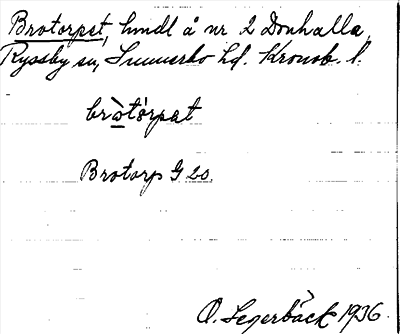 Brotorpet, hmdl å nr 2 Donhalla,
Ryssby sn, Sunnerbo hd. Kronob. l.
bròtórpat
Brotorp G 20.
O. Segerbäck 1936.